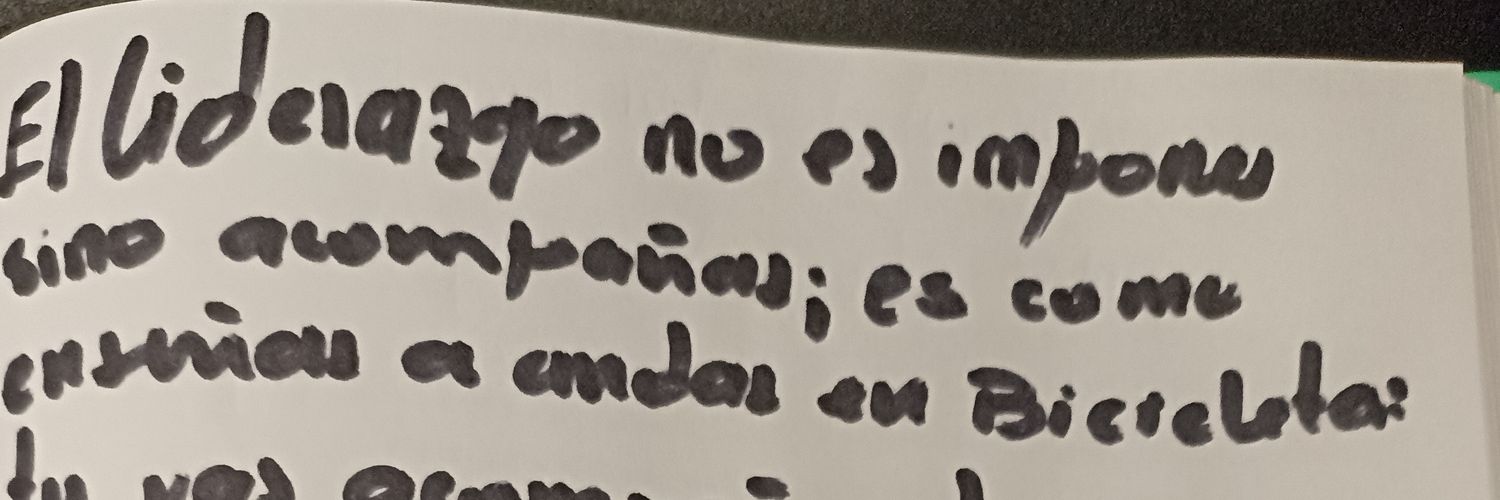 El liderazgo no es imponer
sino acompañar; es como
enseñar a andar en Bicicleta:
tu vas